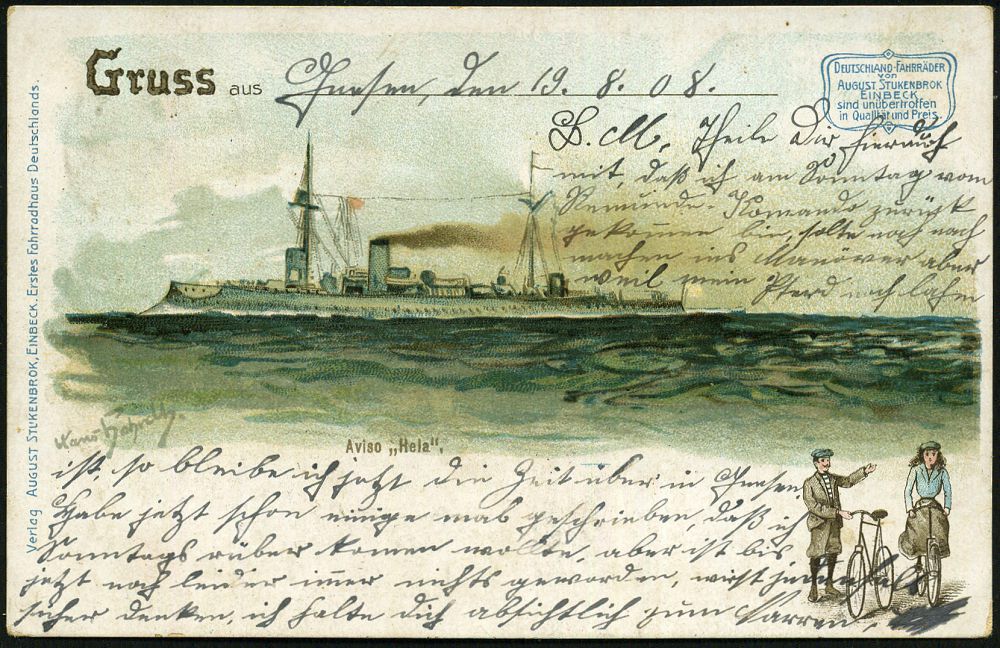 Gruss aus Gnesen, den 19. 8. 08.
DEUTSCHLAND-FAHRRÄDER
von
AUGUST STUKENBROK
EINBECK
sind unübertroffen
in Qualität und Preis.
L. M. Theile Dir hierauf
mit, daß ich am Sonntag vom
Remunde-Komando zurück
gekommen bin, solte noch nach
machen ins Manöver aber
weil mein Pferd noch lahm
Aviso „Hela".
ist, so bleibe ich jetzt die Zeit über in Gnesen,
Habe jetzt schon einige mal geschrieben, daß ich
Sonntags rüber komen wollte, aber ist bis
jetzt noch leider imer nichts geworden, wirst jedenfals
sicher denken, ich halte Dich absichtlich zum Narren.
Verlag AUGUST STUKENBROK, EINBECK. Erstes Fahrradhaus Deutschlands.